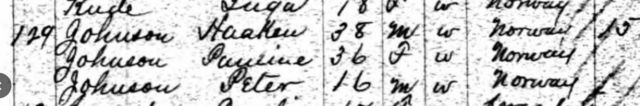 Inga 18 F w Norway
129 Johnson Haaken 38 m w Norway 13
Johnson Pauline 36 F w Norway
Johnson Peter 16 m w Norway